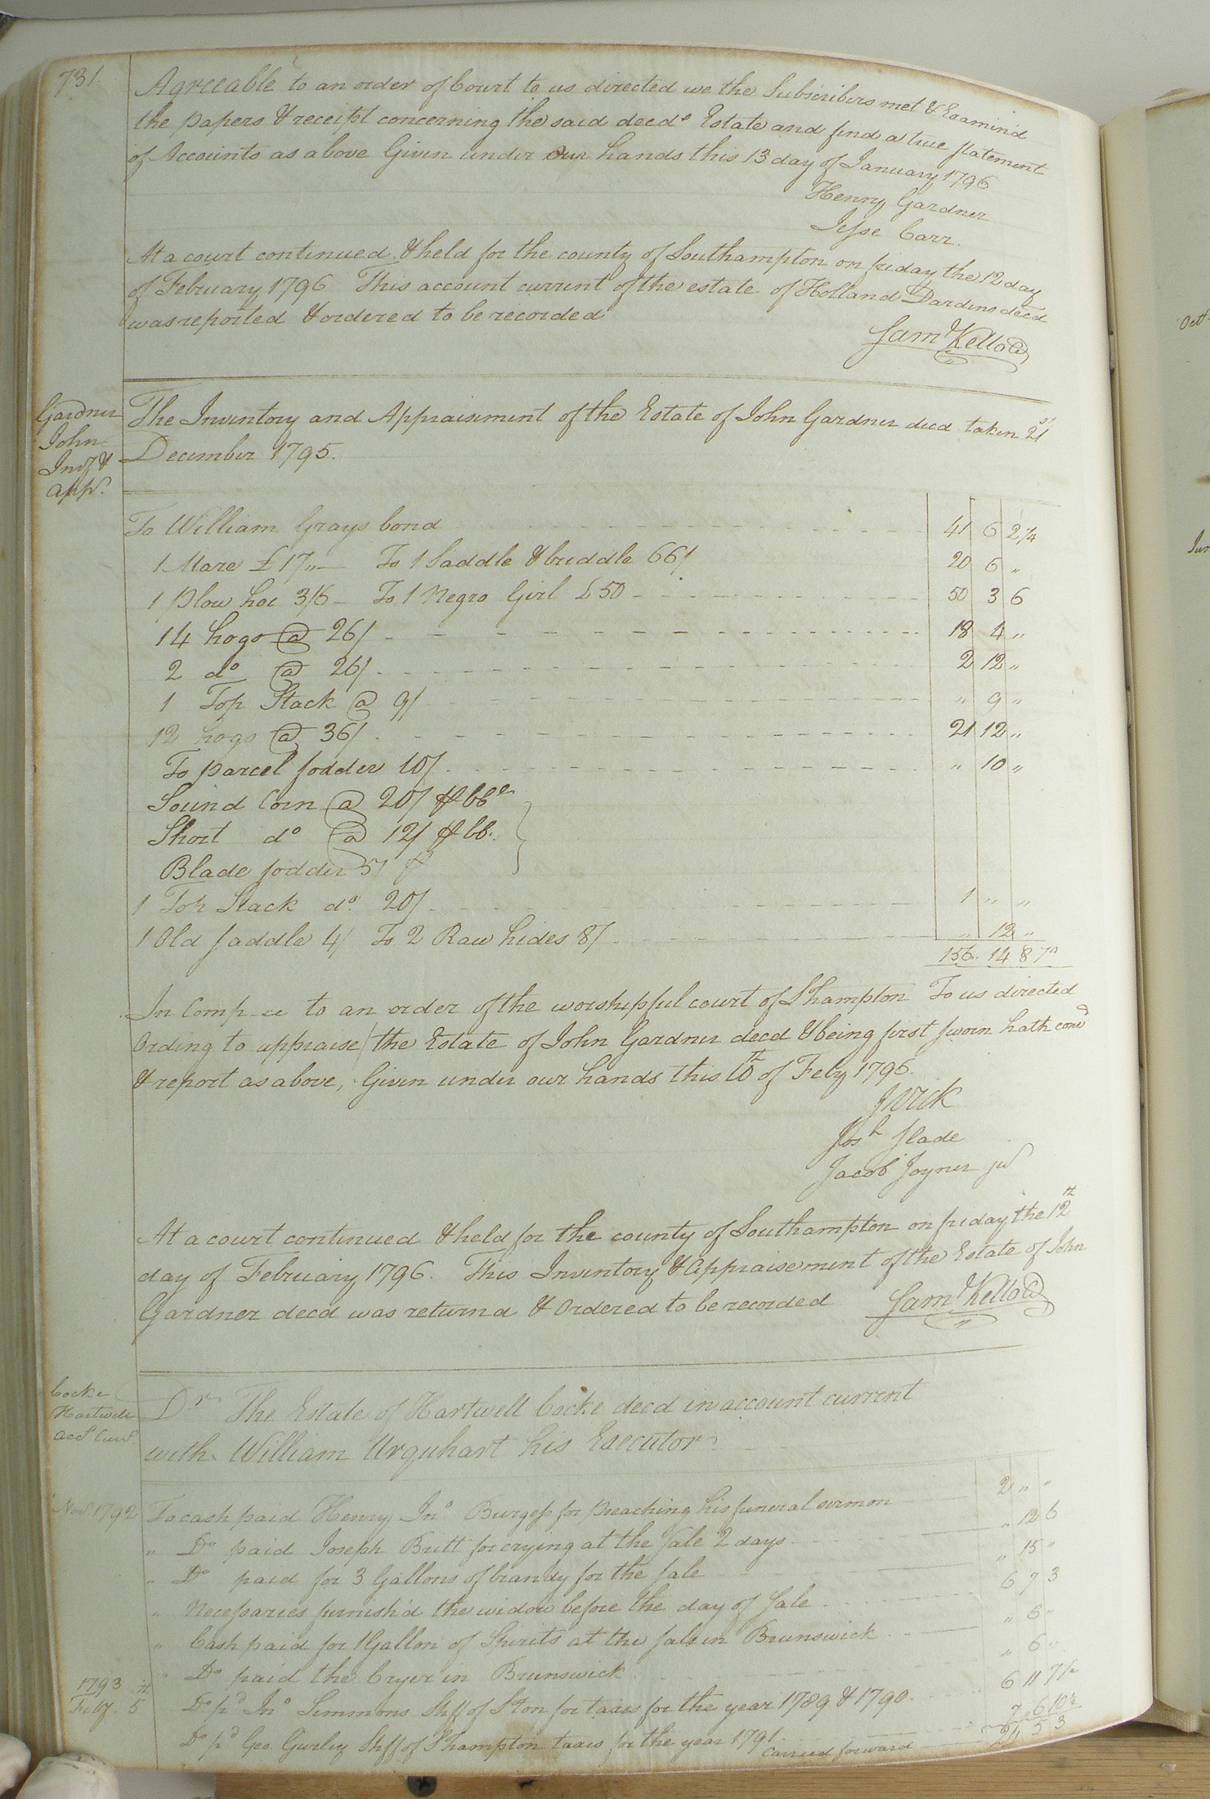 731.
Agreeable to an order of Court to us directed we the Subscribers met & Examind
the papers & receipt concerning the said decds Estate and find a true statement
of Accounts as above Given under our hands this 13 day of January 1796
Henry Gardner
Jesse Carr.
At a court continued & held for the county of Southampton on friday the 12 day
of February 1796 This account current of the estate of Holland Dardens decd
was reported & ordered to be recorded
Saml Kello Cl
Gardner
John
Invy &
appt
The Inventory and Appraisement of the Estate of John Gardner decd taken 21st
December 1795.
To William Grays bond 41 6 2¼
1 Mare £17"— To 1 Saddle & briddle 66/ 20 6 "
1 Plow hoe 3/6 — To 1 Negro Girl £50 — 50 3 6
14 hogs @ 26/ 18 4 "
2 do @ 26/ 2 12 "
1 Top Stack @ 9/ " 9 "
12 hogs @ 36/ 21 12 "
To parcel fodder 10/ " 10 "
Sound Corn @ 20/ ⅌ bb
Short do @ 12/ ⅌ bb.
Blade fodder 5/ ⅌
1 Top Stack do 20/ 1 " "
1 Old saddle 4/ To 2 Raw hides 8/ " 12 "
156. 14 8
In Comp-ce to an order of the worshipful court of S hampton To us directed
Ording to appraise the Estate of John Gardner decd & being first sworn hath
& report as above, Given under our hands this 10th of Feby 1796.
Josh Slade
Jacob Joyner jur
At a court continued & held for the county of Southampton on friday the 12th
day of February 1796. This Inventory & Appraisement of the Estate of John
Gardner decd was returnd & Ordered to be recorded Saml Kello Cl
Cocke
Hartwell
acct Curt
Dr The Estate of Hartwell Cocke decd in account current
with William Urquhart his Executor
Novr 1792 To cash paid Henry Jno Burgess for Preaching his funeral sermon 2 " "
" Do paid Joseph Britt for crying at the Sale 2 days " 12 6
" Do paid for 3 Gallons of brandy for the sale " 15 "
" Necessaries furnishd the widow before the day of Sale 6 7 3
" Cash paid for 1 Gallon of Spirits at the sale in Brunswick " 6 "
" Do paid the Cryer in Brunswick " 6 "
1793
Feby 5th Do pd Jno Simmons Shff of S ton for taxes for the year 1789 & 1790 6 11 7½
Do pd Geo Gurley Shff of S hampton taxes for the year 1791 7 6 10½
Carried forward 24 5 3